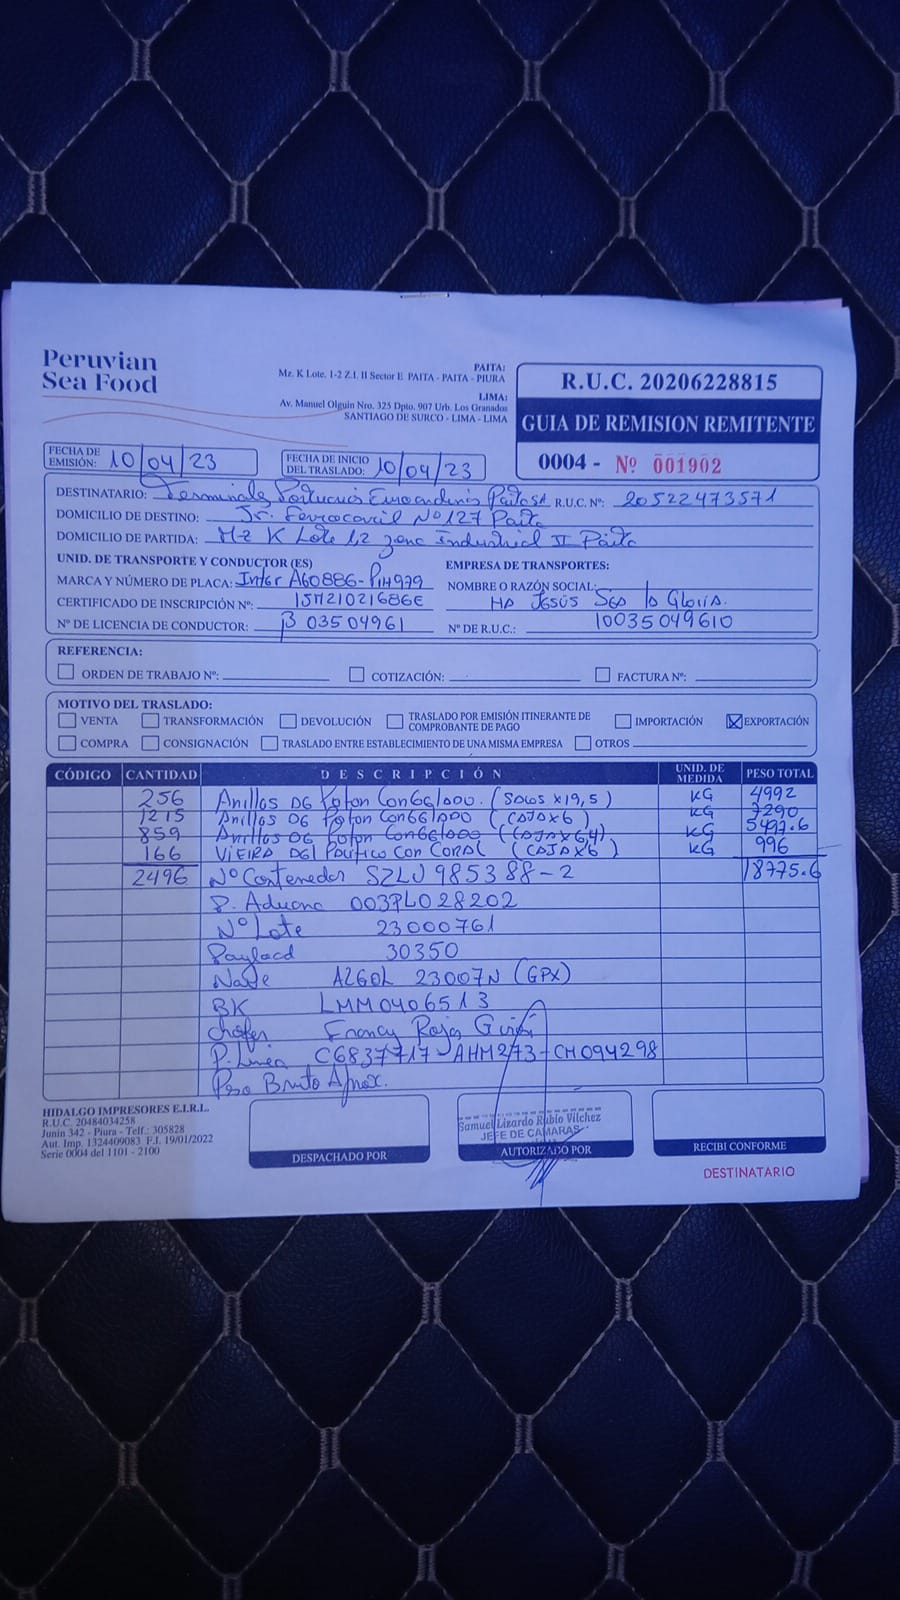 Peruvian
Sea Food
PAITA:
Mz. K Lote. 1-2 Z.I. II Sector E PAITA - PAITA - PIURA
LIMA:
Av. Manuel Olguin Nro. 325 Dpto. 907 Urb. Los Granados
SANTIAGO DE SURCO - LIMA - LIMA
R.U.C. 20206228815
GUIA DE REMISION REMITENTE
0004 - Nº 001902
FECHA DE EMISIÓN: 10/04/23
FECHA DE INICIO DEL TRASLADO: 10/04/23
DESTINATARIO: Terminales Portuarios Euroandinos Paita SA R.U.C. Nº: 20522473571
DOMICILIO DE DESTINO: Jr. Ferrocarril Nº 127 Paita
DOMICILIO DE PARTIDA: Mz K Lote 1,2 zona Industrial II Paita
UNID. DE TRANSPORTE Y CONDUCTOR (ES)
MARCA Y NÚMERO DE PLACA: Inter A60886-P1H979
CERTIFICADO DE INSCRIPCIÓN Nº: 15M21021686E
Nº DE LICENCIA DE CONDUCTOR: B 03504961
EMPRESA DE TRANSPORTES:
NOMBRE O RAZÓN SOCIAL:
Jesús Sea la Gloria.
Nº DE R.U.C.: 10035049610
REFERENCIA:
ORDEN DE TRABAJO Nº: COTIZACIÓN: FACTURA Nº:
MOTIVO DEL TRASLADO:
VENTA TRANSFORMACIÓN DEVOLUCIÓN TRASLADO POR EMISIÓN ITINERANTE DE COMPROBANTE DE PAGO IMPORTACIÓN EXPORTACIÓN
COMPRA CONSIGNACIÓN TRASLADO ENTRE ESTABLECIMIENTO DE UNA MISMA EMPRESA OTROS
CÓDIGO CANTIDAD DESCRIPCIÓN UNID. DE MEDIDA PESO TOTAL
256 Anillos DG Poton Con6G1ADO. (SACOS X19,5) KG 4992
1215 Anillos DG Poton Con6G1ADO (CAJA X6) KG 7290
859 Anillos DG Poton Con6G1ADO (CAJA X 6,4) KG 5497.6
166 VIEIRA DGL PACIFICO CON CORAL (CAJA X6) KG 996
2496 Nº Contenedor SZLU 985388-2 18775.6
P. Aduana 003PL028202
Nº Lote 23000761
Payload 30350
Nave AZGOL 23007N (GPX)
BK LMM0406513
chofer Francy Rojas Girón
P. Linea C6837717-AHM273-CM094298
Peso Bruto Aprox.
HIDALGO IMPRESORES E.I.R.L.
R.U.C. 20484034258
Junin 342 - Piura - Telf.: 305828
Aut. Imp. 1324409083 F.I. 19/01/2022
Serie 0004 del 1101 - 2100
DESPACHADO POR
Samuel Lizardo Rubio Vilchez
JEFE DE CAMARAS
AUTORIZADO POR
RECIBI CONFORME
DESTINATARIO